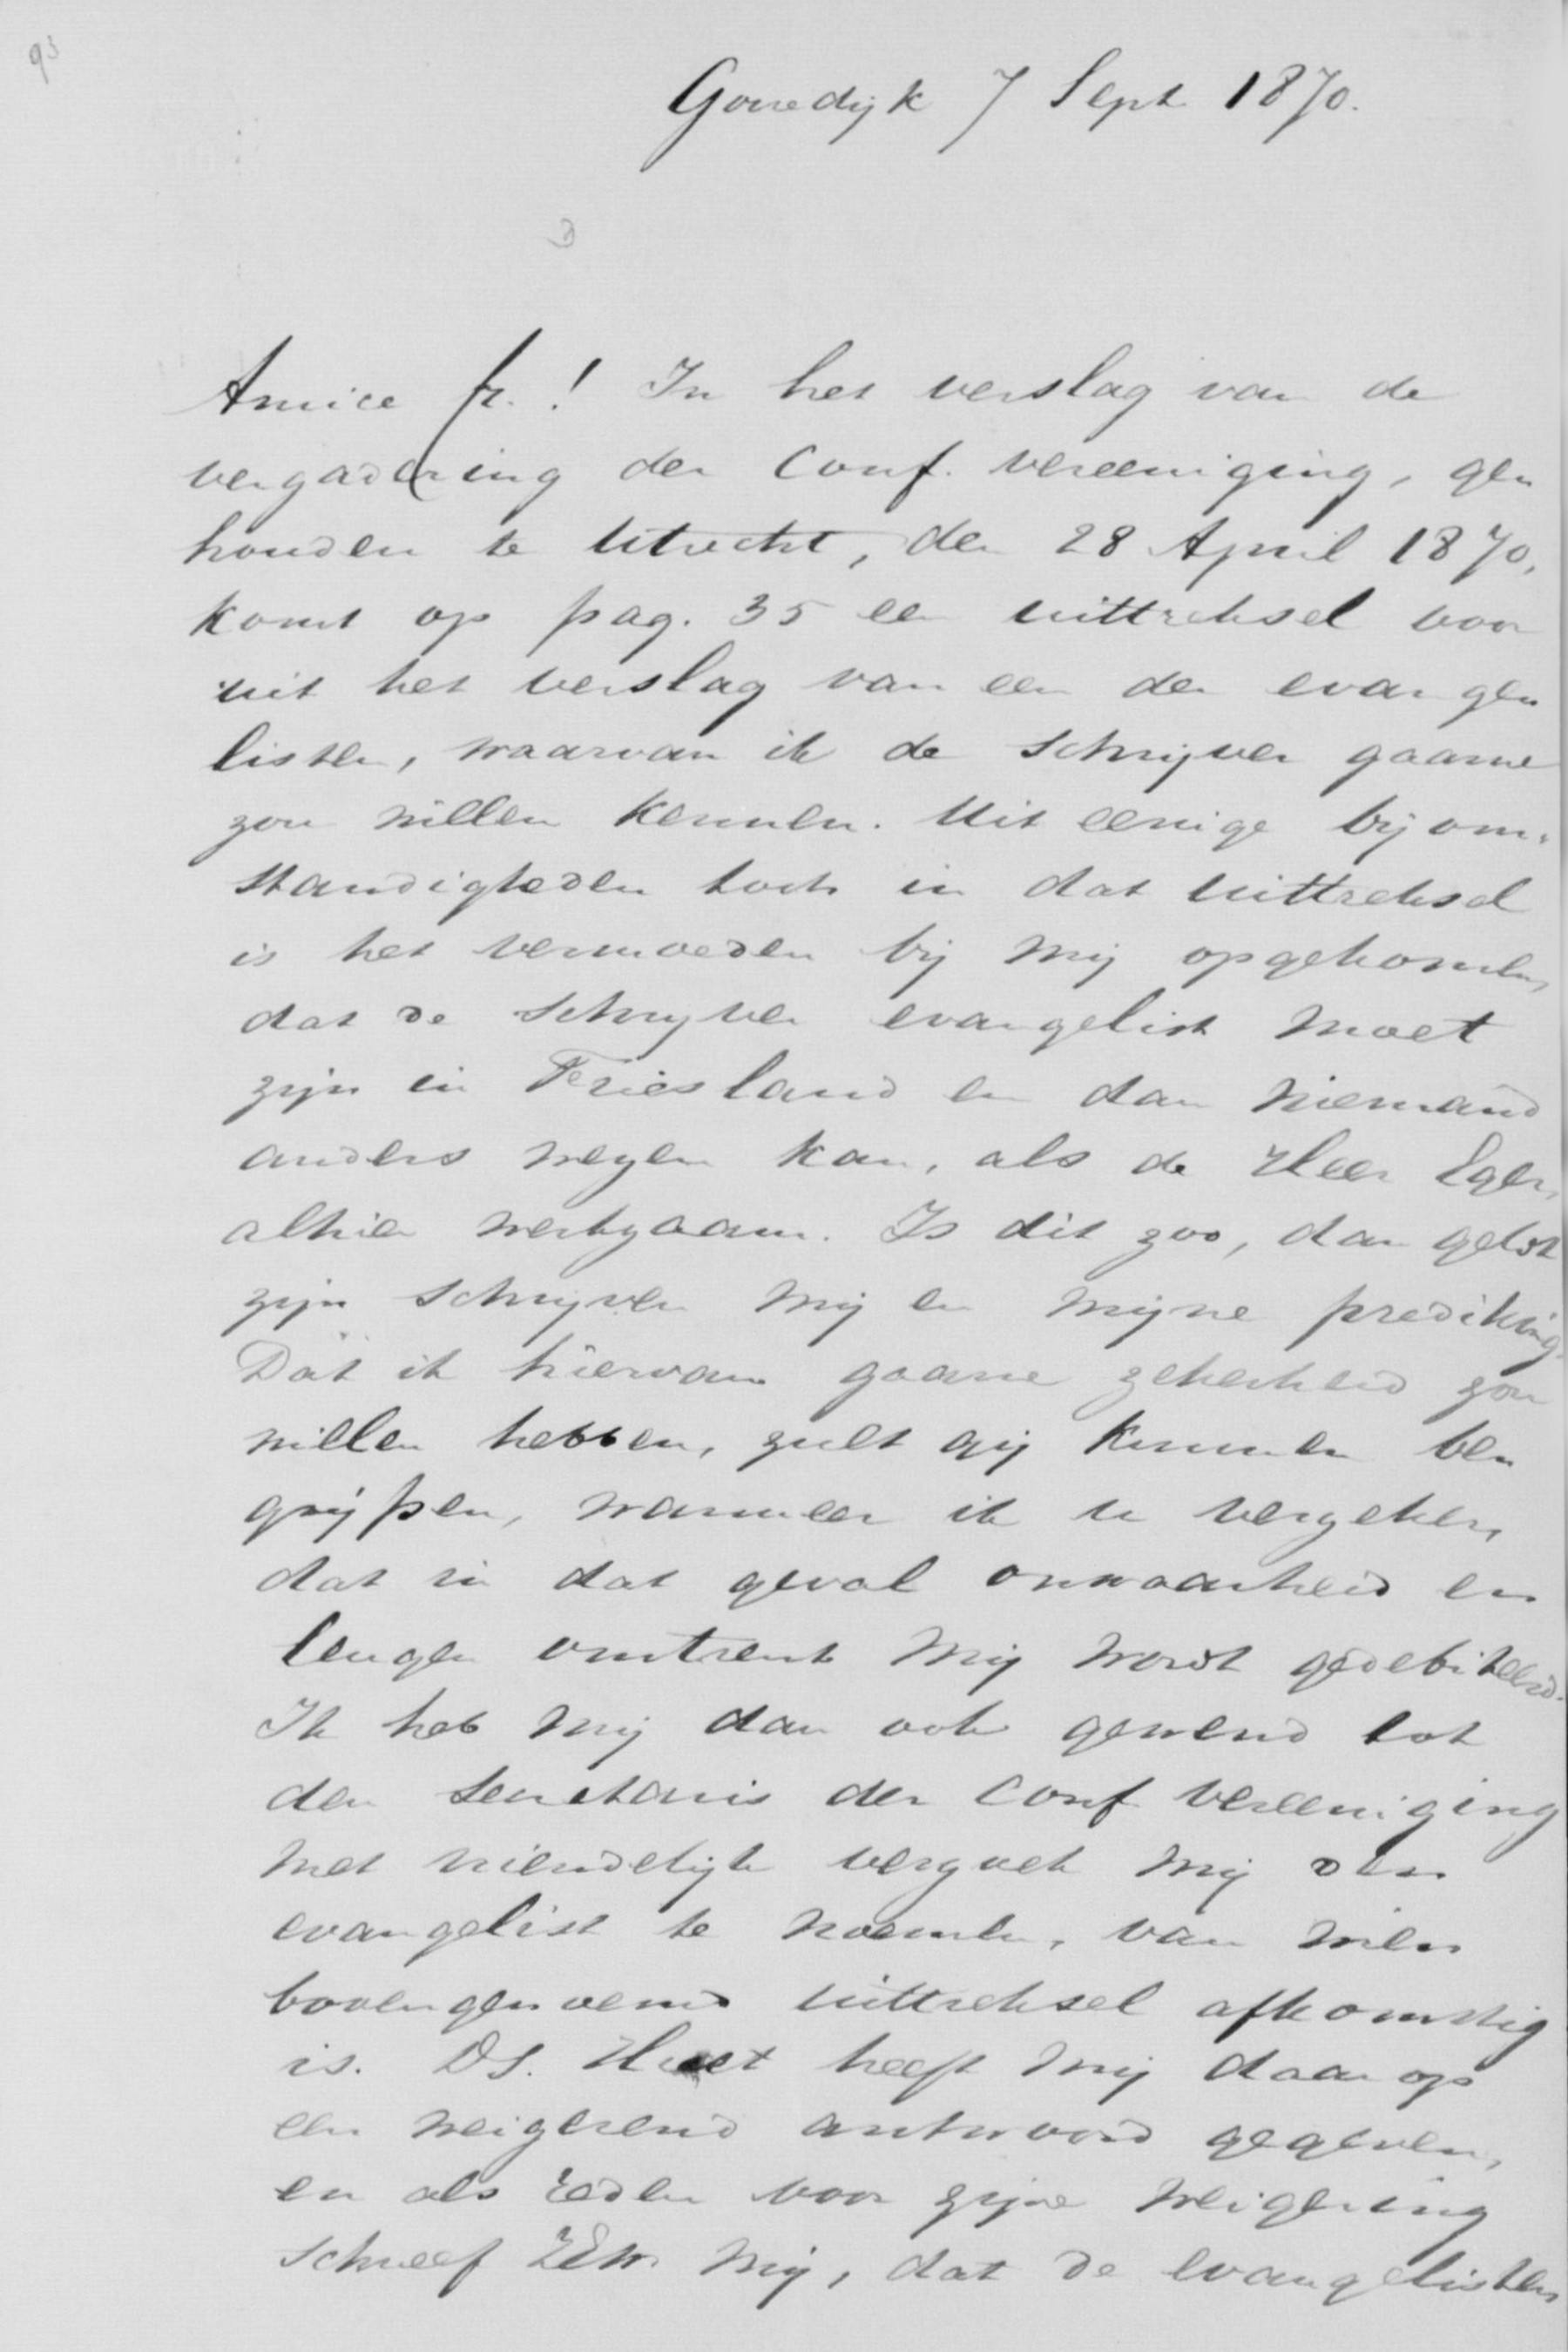 93
Gorredijk 7 Sept 1870.
Amice fr.! In het verslag van de
vergadering der Conf. vereeniging, ge-
houden te Utrecht, den 28 April 1870,
komt op pag. 35 een uittreksel voor
uit het verslag van een der evange-
listen, waarvan ik de schrijver gaarne
zou willen kennen. Uit eenige bijom-
standigheden toch in dat uittreksel
is het vermoeden bij mij opgekomen,
dat de schrijver evangelist moet
zijn in Friesland en dan niemand
anders wezen kan, als de Heer Eger,
alhier werkzaam. Is dit zoo, dan geldt
zijn schrijven mij en mijne prediking.
Dat ik hiervan gaarne zekerheid zou
willen hebben, zult gij kunnen be-
grijpen, wanneer ik u verzeker,
dat in dat geval onwaarheid en
leugen omtrent mij wordt gedebiteerd.
Ik heb mij dan ook gewend tot
den secretaris der Conf vereeniging
met vriendelijk verzoek mij den
evangelist te noemen, van wien
bovengenoemd uittreksel afkomstig
is. DS. Huet heeft mij daarop
een weigerend antwoord gegeven,
en als reden voor zijne weigering
schreef ZEw. mij, dat de evangelisten